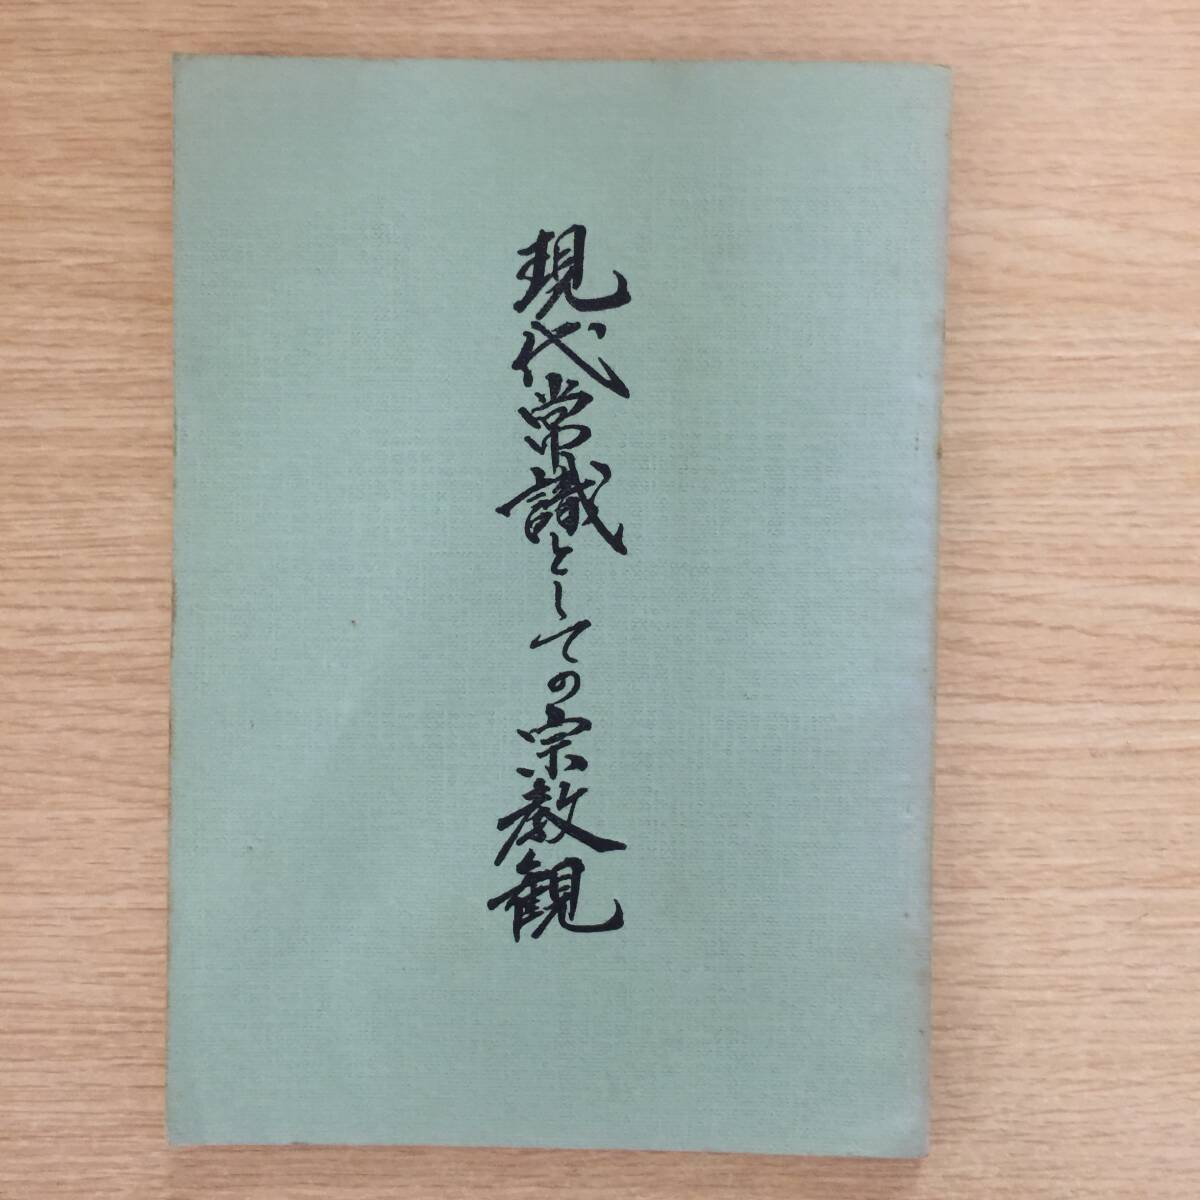 現代常識としての宗教観